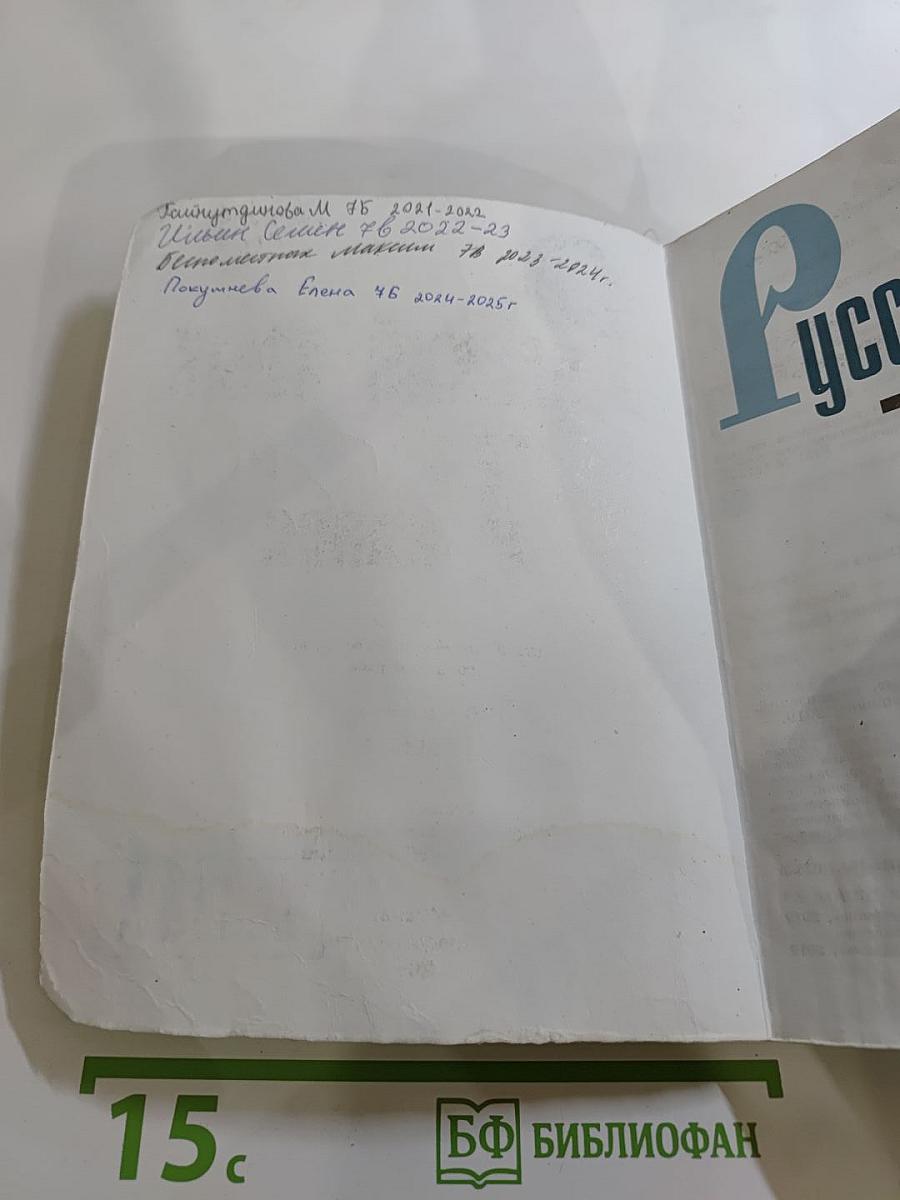 Гайнутдинова М 7Б 2021-2022
Ильин Семен 7в 2022-23
Максим 7в 2023-2024г.
Покушнева Елена 7Б 2024-2025г
Русс
15 с
БФ БИБЛИОФАН